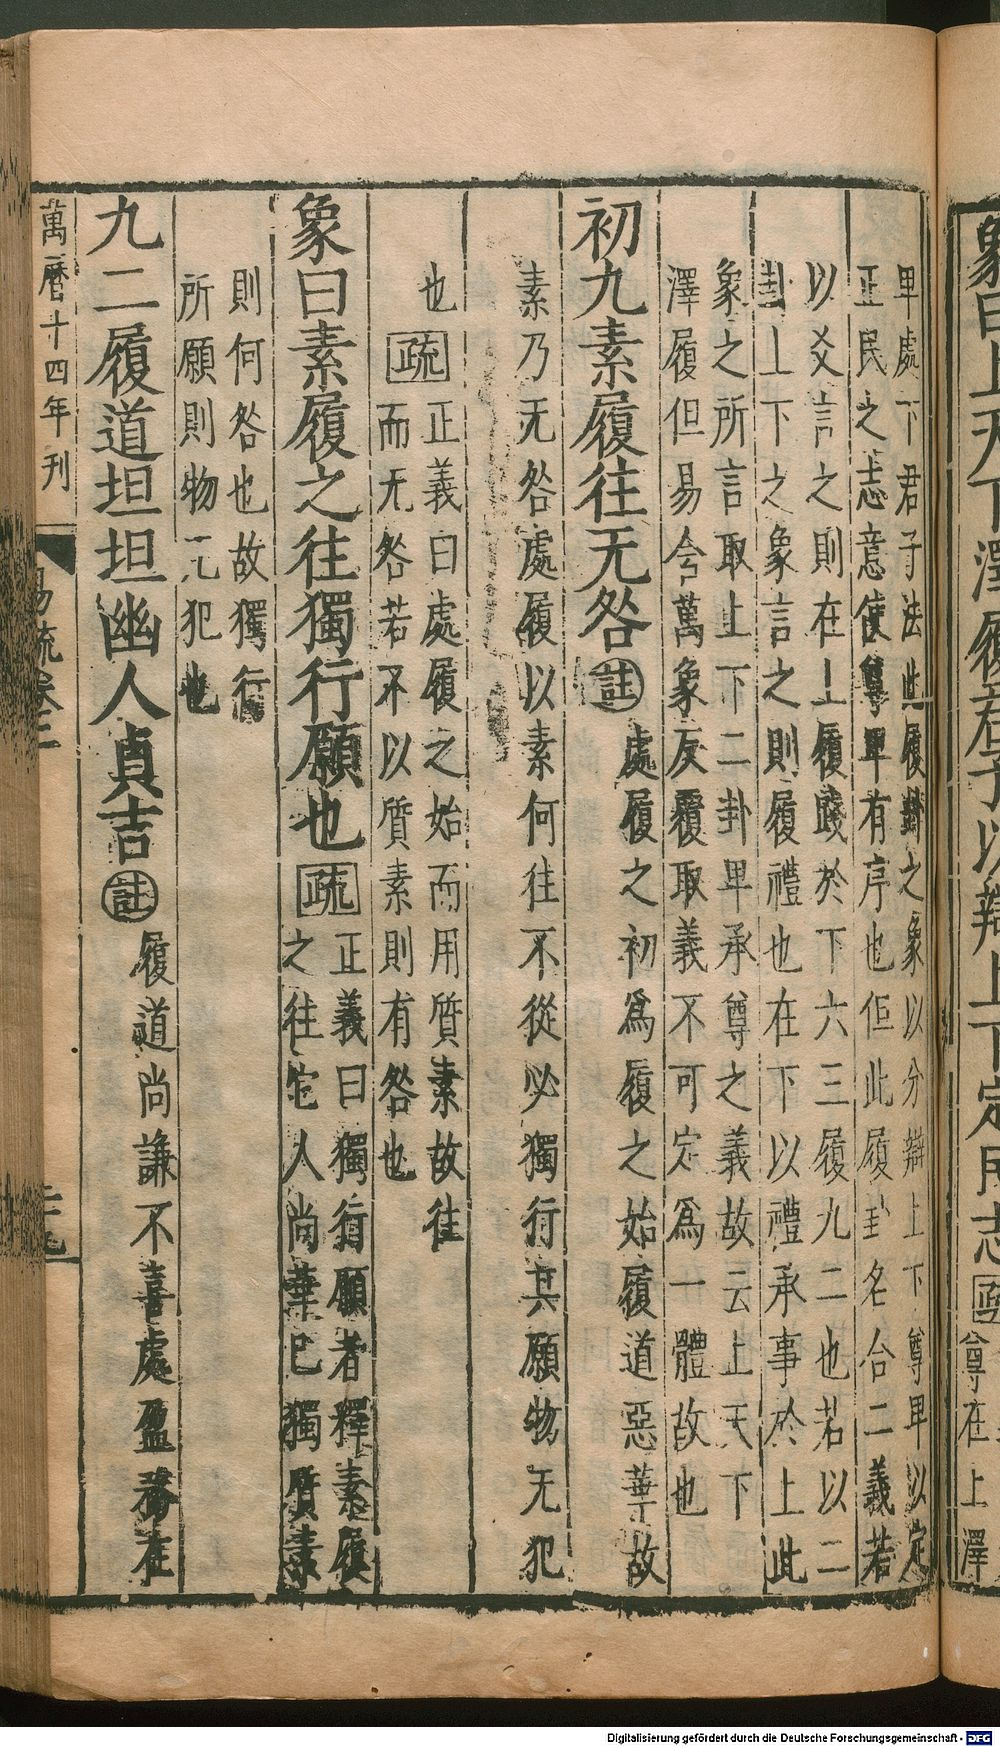 象曰上天下澤履君子以辯上下定民志疏
尊在上澤
卑處下君子法此履卦之象以分辯上下尊卑以定
正民之志意使尊卑有序也但此履卦名合二義若
以爻言之則在上履踐於下六三履九二也若以二
卦上下之象言之則履禮也在下以禮承事於上此
象之所言取上下二卦卑承尊之義故云上天下
澤履但易含萬象反覆取義不可定爲一體故也
初九素履往无咎註處履之初爲履之始履道惡華故
素乃无咎處履以素何往不從必獨行其願物无犯
也疏正義曰處履之始而用質素故往
而无咎若不以質素則有咎也
象曰素履之往獨行願也疏正義曰獨行願者釋素履
之往它人尚華已獨質素
則何咎也故獨行
所願則物无犯也
九二履道坦坦幽人貞吉註履道尚謙不喜處盈務在
萬曆十四年刊
易疏卷二
Digitalisierung gefördert durch die Deutsche Forschungsgemeinschaft - DFG